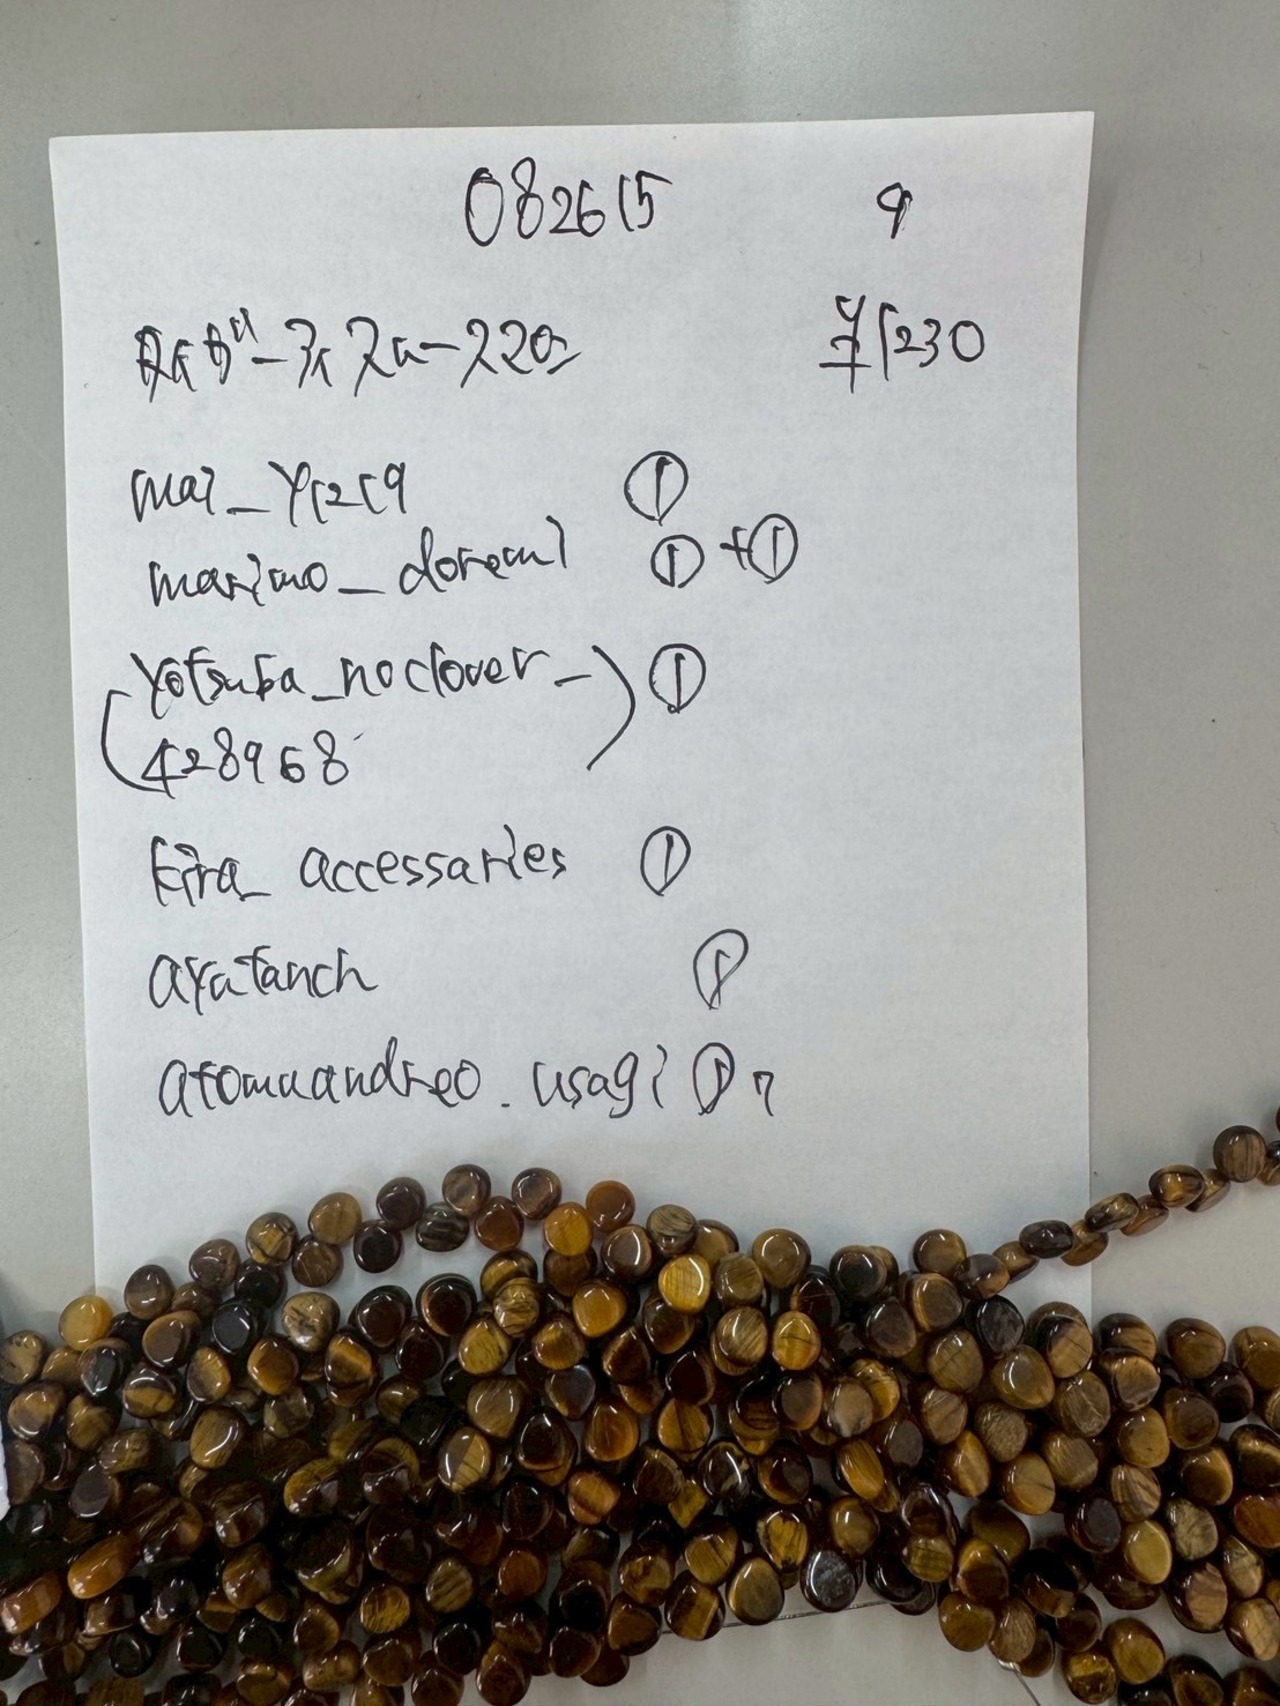 082615 9
¥1230
mai_y1219 ①
marimo_doremi ① + ①
(yotsuba_noclover_) ①
428968
kira_accessaries ①
ayatanch ①
atomuandreo.usagi ①